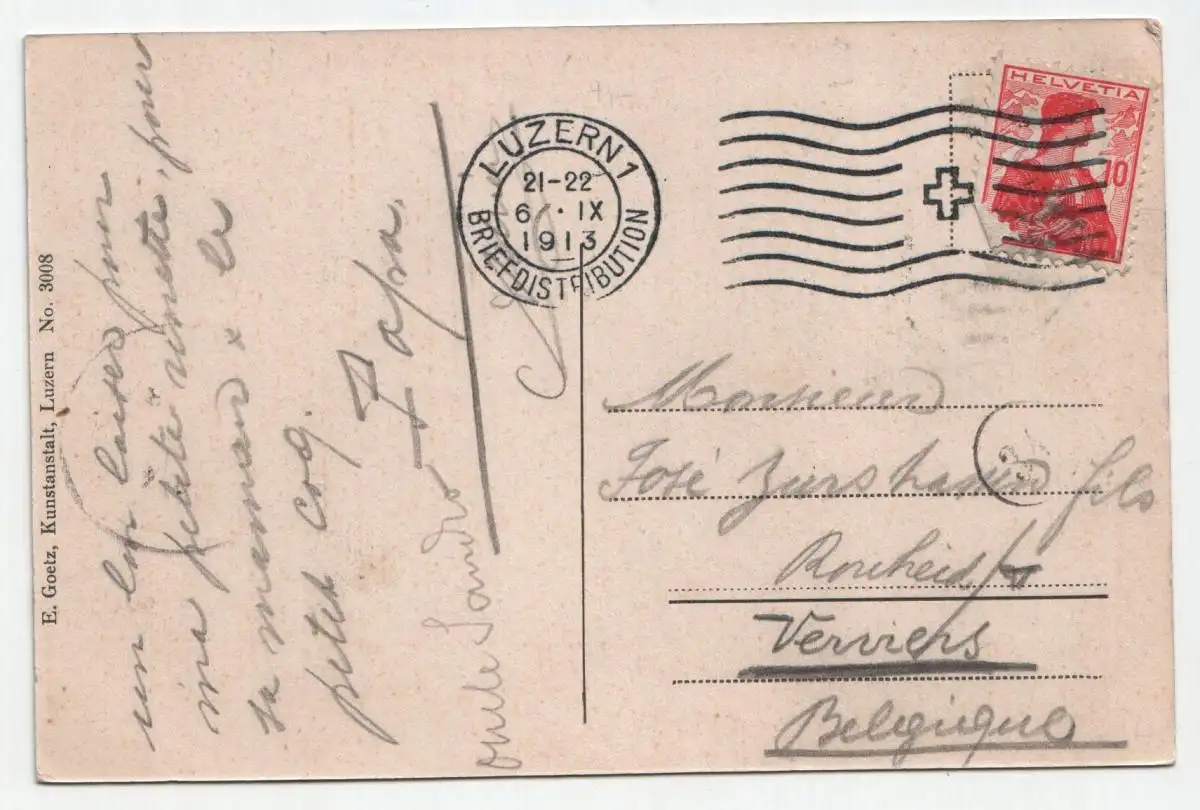 E. Goetz, Kunstanstalt, Luzern No. 3008
un bon baiser pour
ma petite mimette, pour
sa maman & le
petit coq.
Papa.
oncle Sandro
LUZERN 1
21-22
6. IX
1913
BRIEFDISTRIBUTION
HELVETIA
10
Monsieur
José fils
Verviers
Belgique